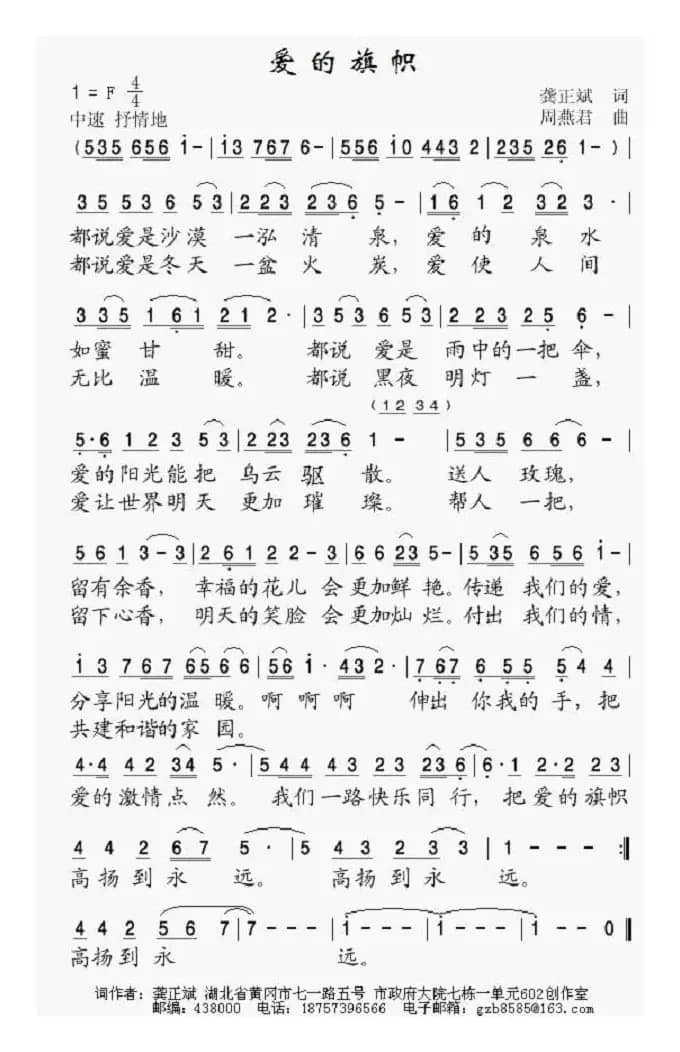 爱的旗帜
1=F 4/4
龚正斌 词
中速 抒情地
周燕君 曲
(535 656 i-|i3 767 6-|556 i0 443 2|235 26 1-)|
35 536 6 53|223 236 5-|16 12 32 3·|
都说爱是沙漠 一泓 清 泉, 爱 的 泉 水
都说爱是冬天 一盆 火 炭, 爱 使 人 间
335 161 212·|353 653|2 23 25 6-|
如蜜 甘 甜。 都说 爱是 雨中的一把伞,
无比 温 暖。 都说 黑夜 明灯 一 盏,
(12 34)
5·6 123 53|223 236 1-|535 666 6-|
爱的阳光能把 乌云 驱 散。 送人 玫瑰,
爱让世界明天 更加 璀 璨。 帮人 一把,
561 3-3|261 22-3|66 23 5-|535 656 i-|
留有余香, 幸福的花儿 会 更加鲜 艳。传递 我们的爱,
留下心香, 明天的笑脸 会 更加灿 烂。付出 我们的情,
i3 767 6566|56 i· 432·|767 655 54 4|
分享阳光的温 暖。啊 啊 啊 伸出 你我的 手, 把
共建和谐的家 园。
4·4 42 34 5·|544 43 23 236|6·1 2·2 23|
爱的激情点 然。 我们一路快乐同 行, 把 爱的旗帜
442 67 5·|5 43 233|1---:‖
高扬到永 远。 高扬到永 远。
442 567|7---|i---|i---|i--0‖
高扬到永 远。
词作者:龚正斌 湖北省黄冈市七一路五号 市政府大院七栋一单元602创作室
邮编:438000 电话:18757396566 电子邮箱:gzb8585@163.com